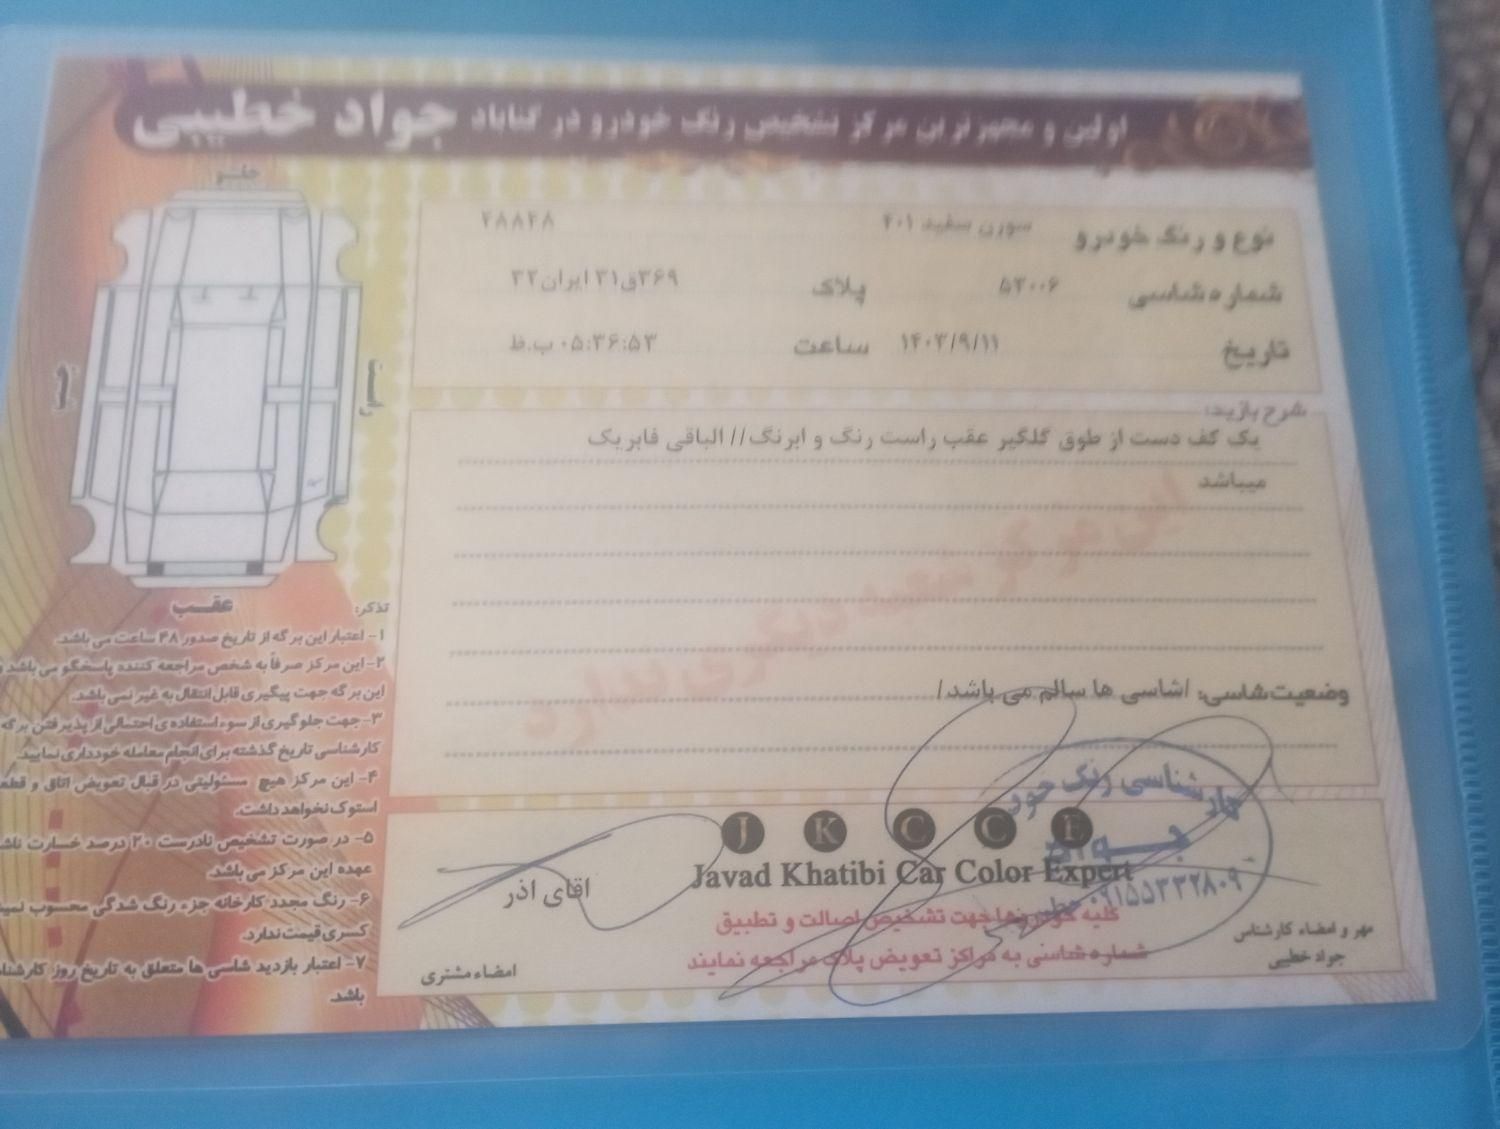 اولین و مجهزترین مرکز تشخیص رنگ خودرو در گناباد جواد خطیبی
جلو
نوع و رنگ خودرو سورن سفید ۴۰۱ ۲۸۸۴۸
شماره شاسی ۵۳۰۰۶ پلاک ۳۶۹ق۳۱ ایران۳۲
تاریخ ۱۴۰۳/۹/۱۱ ساعت ۰۵:۳۶:۵۳ ب.ظ
چپ
راست
شرح بازدید:
یک کف دست از طوق گلگیر عقب راست رنگ و ابرنگ// الباقی فابریک
میباشد
این مرکز شعبه دیگری ندارد
وضعیت شاسی: /شاسی ها سالم می باشد/
عقب
تذکر:
۱- اعتبار این برگه از تاریخ صدور ۴۸ ساعت می باشد.
۲- این مرکز صرفاً به شخص مراجعه کننده پاسخگو می باشد و
این برگه جهت پیگیری قابل انتقال به غیر نمی باشد.
۳- جهت جلوگیری از سوء استفاده ی احتمالی از پذیرفتن برگه
کارشناسی تاریخ گذشته برای انجام معامله خودداری نمایید.
۴- این مرکز هیچ مسئولیتی در قبال تعویض اتاق و
استوک نخواهد داشت.
۵- در صورت تشخیص نادرست ۲۰ درصد خسارت
عهده این مرکز می باشد.
۶- رنگ مجدد کارخانه جزء رنگ شدگی محسوب
کسری قیمت ندارد.
۷- اعتبار بازدید شاسی ها متعلق به تاریخ روز
باشد.
J K C C E
Javad Khatibi Car Color Expert
کلیه خودروها جهت تشخیص اصالت و تطبیق
شماره شاسی به مراکز تعویض پلاک مراجعه نمایند
کارشناسی رنگ خودرو
جواد
خطیبی ۰۹۱۵۵۳۳۲۸۰۹
مهر و امضاء کارشناس
جواد خطیبی
اقای اذر
امضاء مشتری